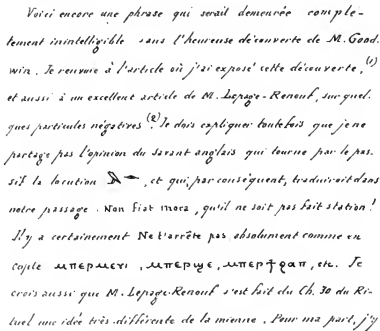 Voici encore une phrase qui serait demeurée complè-
tement inintelligible sans l'heureuse découverte de M. Good-
win. Je renvoie à l'article où j'ai exposé cette découverte, (1)
et aussi à un excellent article de M. Lepage-Renouf, sur quel-
ques particules négatives (2). Je dois expliquer toutefois que je ne
partage pas l'opinion du savant anglais qui tourne par le pas-
sif la locution , et qui, par conséquent, traduirait dans
notre passage. Non fiat mora, qu'il ne soit pas fait station!
Il y a certainement Ne t'arrête pas absolument comme en
copte ⲙⲡⲉⲣⲙⲉⲩⲓ, ⲙⲡⲉⲣϣⲉ, ⲙⲡⲉⲣϯϩⲁⲡ, etc. Je
crois aussi que M. Lepage-Renouf s'est fait du Ch. 30 du Ri-
tuel une idée très-différente de la mienne. Pour ma part, j'y